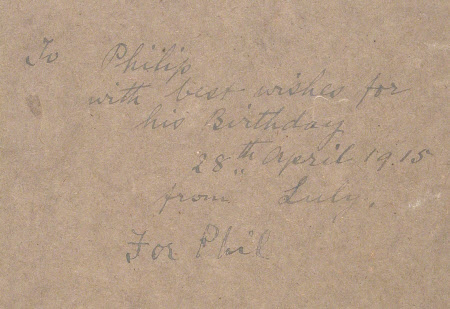 To Philip
with best wishes for
his Birthday
28th April 1915
from Luly.
For Phil